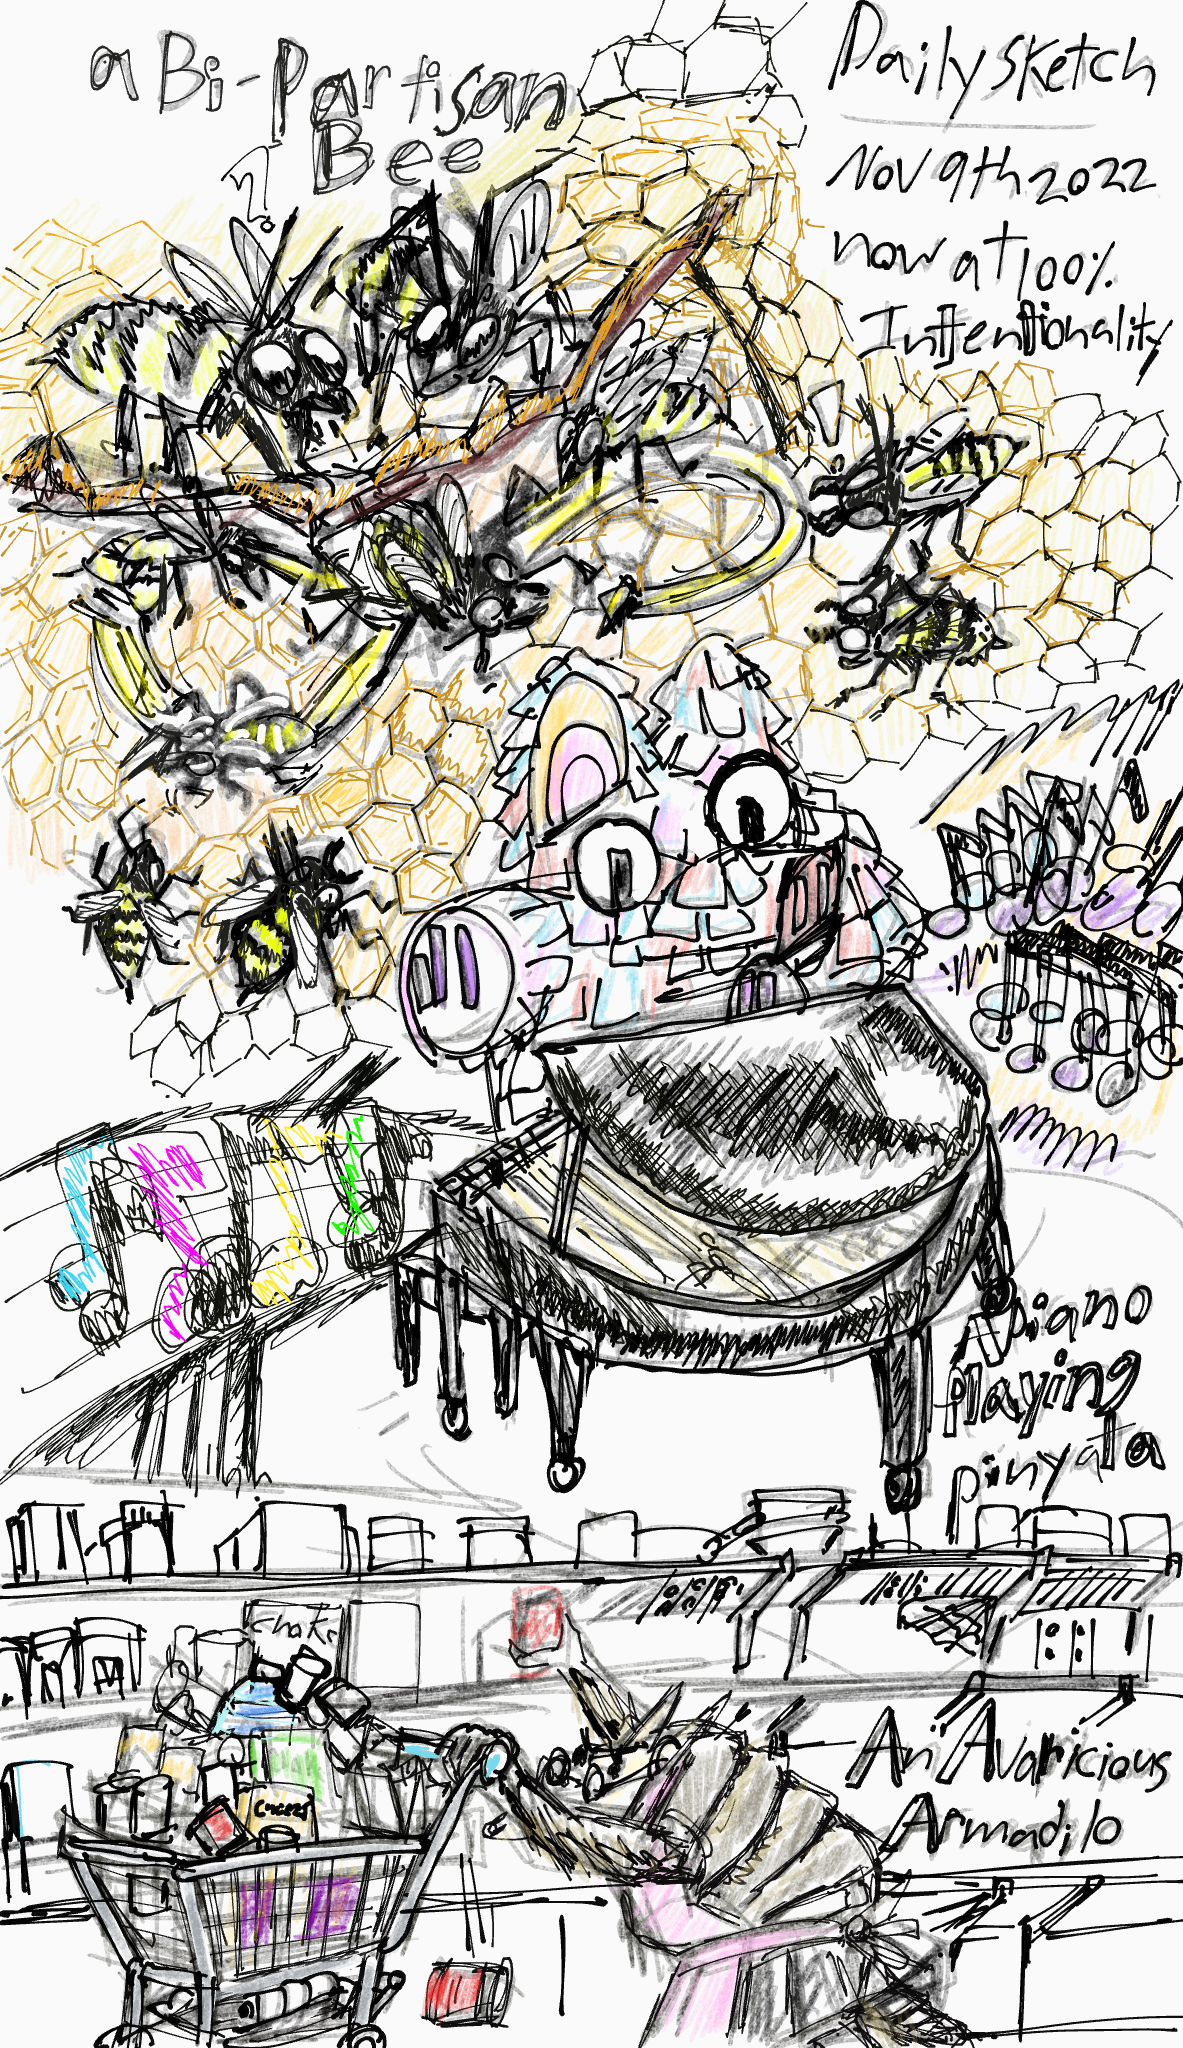 a Bi-Partisan
Bee
Daily sketch
Nov 9th 2022
now at 100%
Inttentionality
A piano
playing
pinyata
An Avaricious
Armadilo